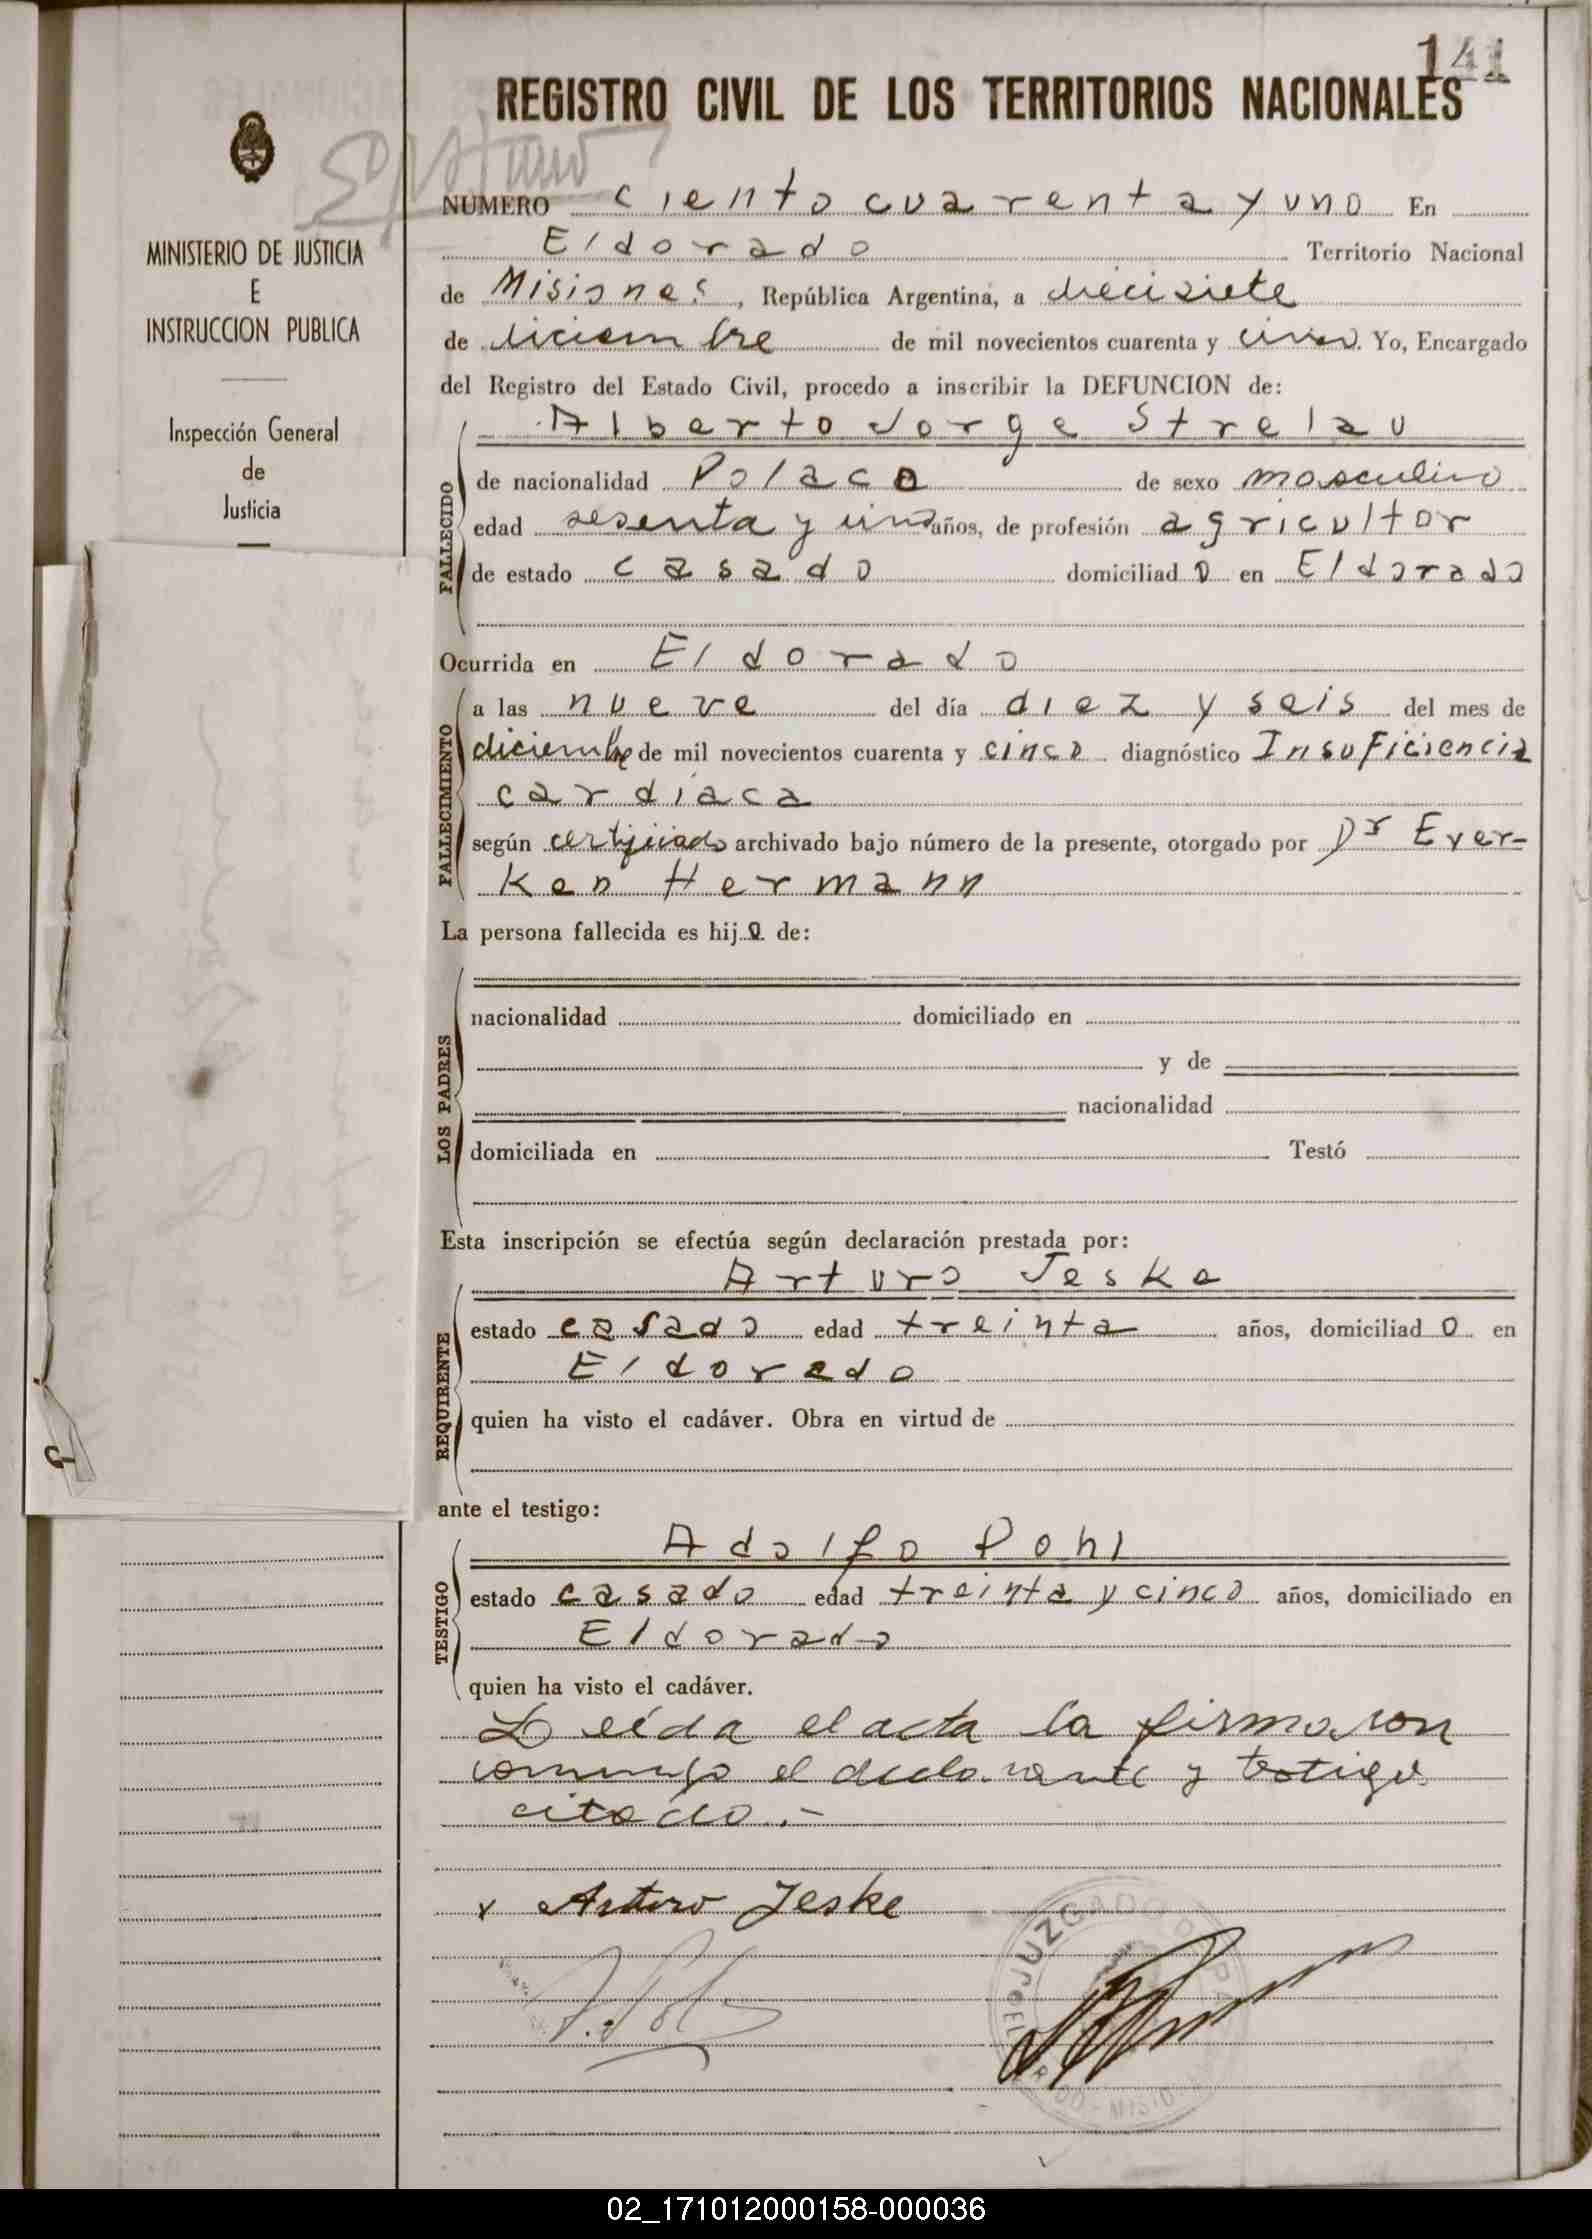 141
REGISTRO CIVIL DE LOS TERRITORIOS NACIONALES
MINISTERIO DE JUSTICIA
E
INSTRUCCION PUBLICA
Inspección General
de
Justicia
NUMERO ciento cuarenta y uno En
Eldorado Territorio Nacional
de Misiones, República Argentina, a diecisiete
de diciembre de mil novecientos cuarenta y cinco. Yo, Encargado
del Registro del Estado Civil, procedo a inscribir la DEFUNCION de:
FALLECIDO
Alberto Jorge Strelau
de nacionalidad Polaco de sexo masculino
edad sesenta y uno años, de profesión agricultor
de estado casado domiciliado en Eldorado
Ocurrida en Eldorado
FALLECIMIENTO
a las nueve del día diez y seis del mes de
diciembre de mil novecientos cuarenta y cinco diagnóstico Insuficiencia
cardiaca
según certificado archivado bajo número de la presente, otorgado por Dr Ever-
ken Hermann
La persona fallecida es hijo de:
LOS PADRES
nacionalidad domiciliado en
y de
nacionalidad
domiciliada en Testó
Esta inscripción se efectúa según declaración prestada por:
REQUIRENTE
Arturo Jeske
estado casado edad treinta años, domiciliado en
Eldorado
quien ha visto el cadáver. Obra en virtud de
ante el testigo:
TESTIGO
Adolfo Pohl
estado casado edad treinta y cinco años, domiciliado en
Eldorado
quien ha visto el cadáver.
Leída el acta la firmaron
conmigo el declarante y testigo
citado.-
x Arturo Jeske
JUZGADO DE PAZ
02_171012000158-000036